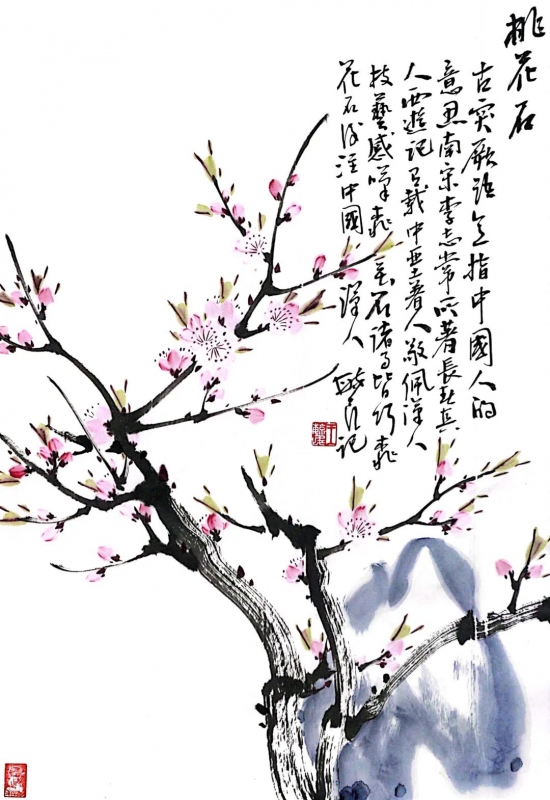 桃花石
古突厥語意指中國人的
意思南宋李志常所著長春真
人西遊記曰載中亞土著人敬佩漢人
技藝感嘆桃花石諸事皆巧桃
花石後注中國漢人
記